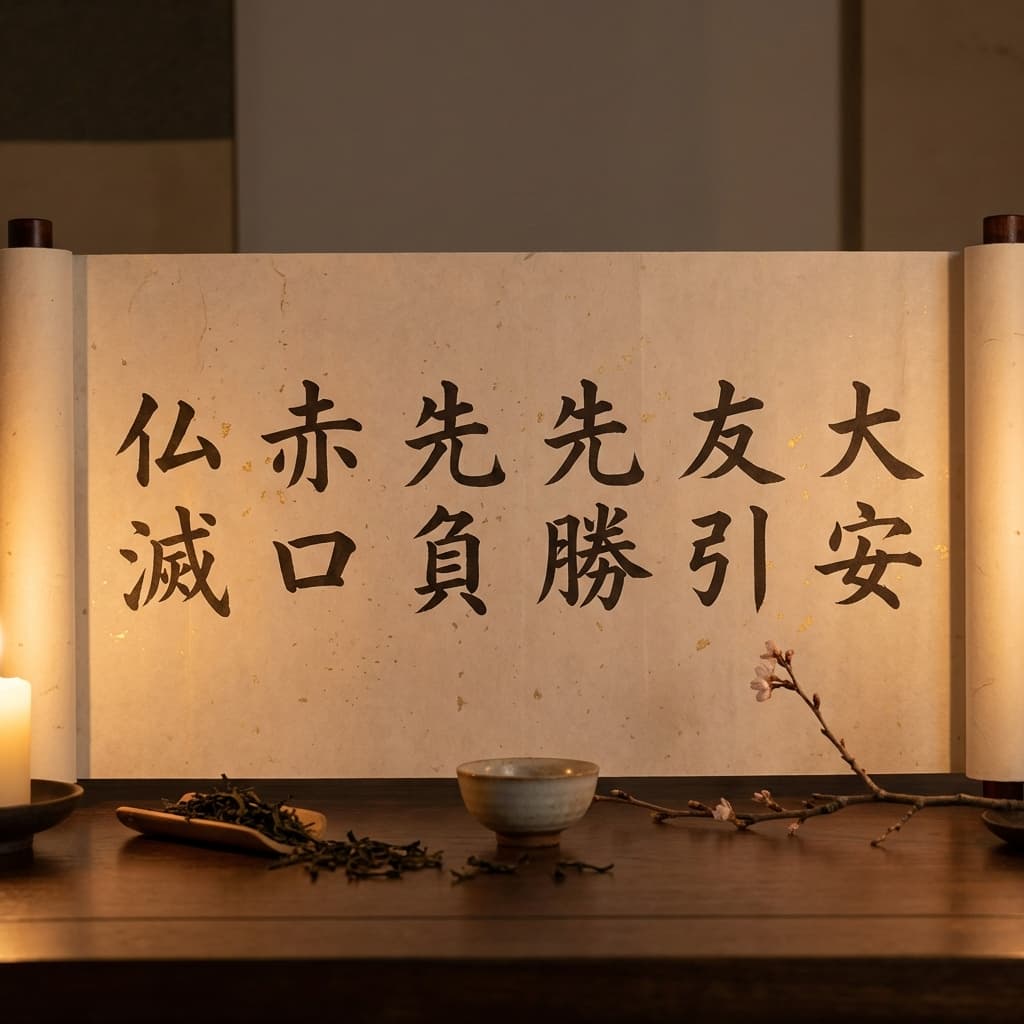 大安
友引
先勝
先負
赤口
仏滅